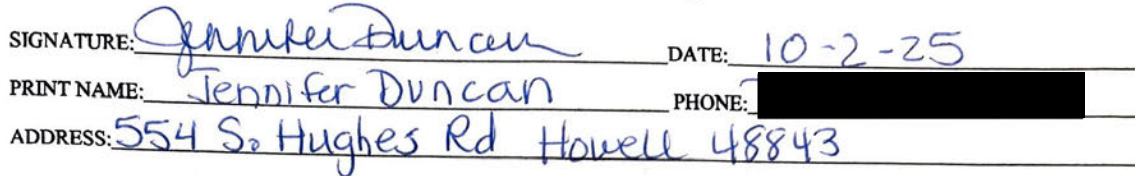 SIGNATURE: Jennifer Duncan DATE: 10-2-25
PRINT NAME: Jennifer Duncan PHONE:
ADDRESS: 554 S. Hughes Rd Howell 48843